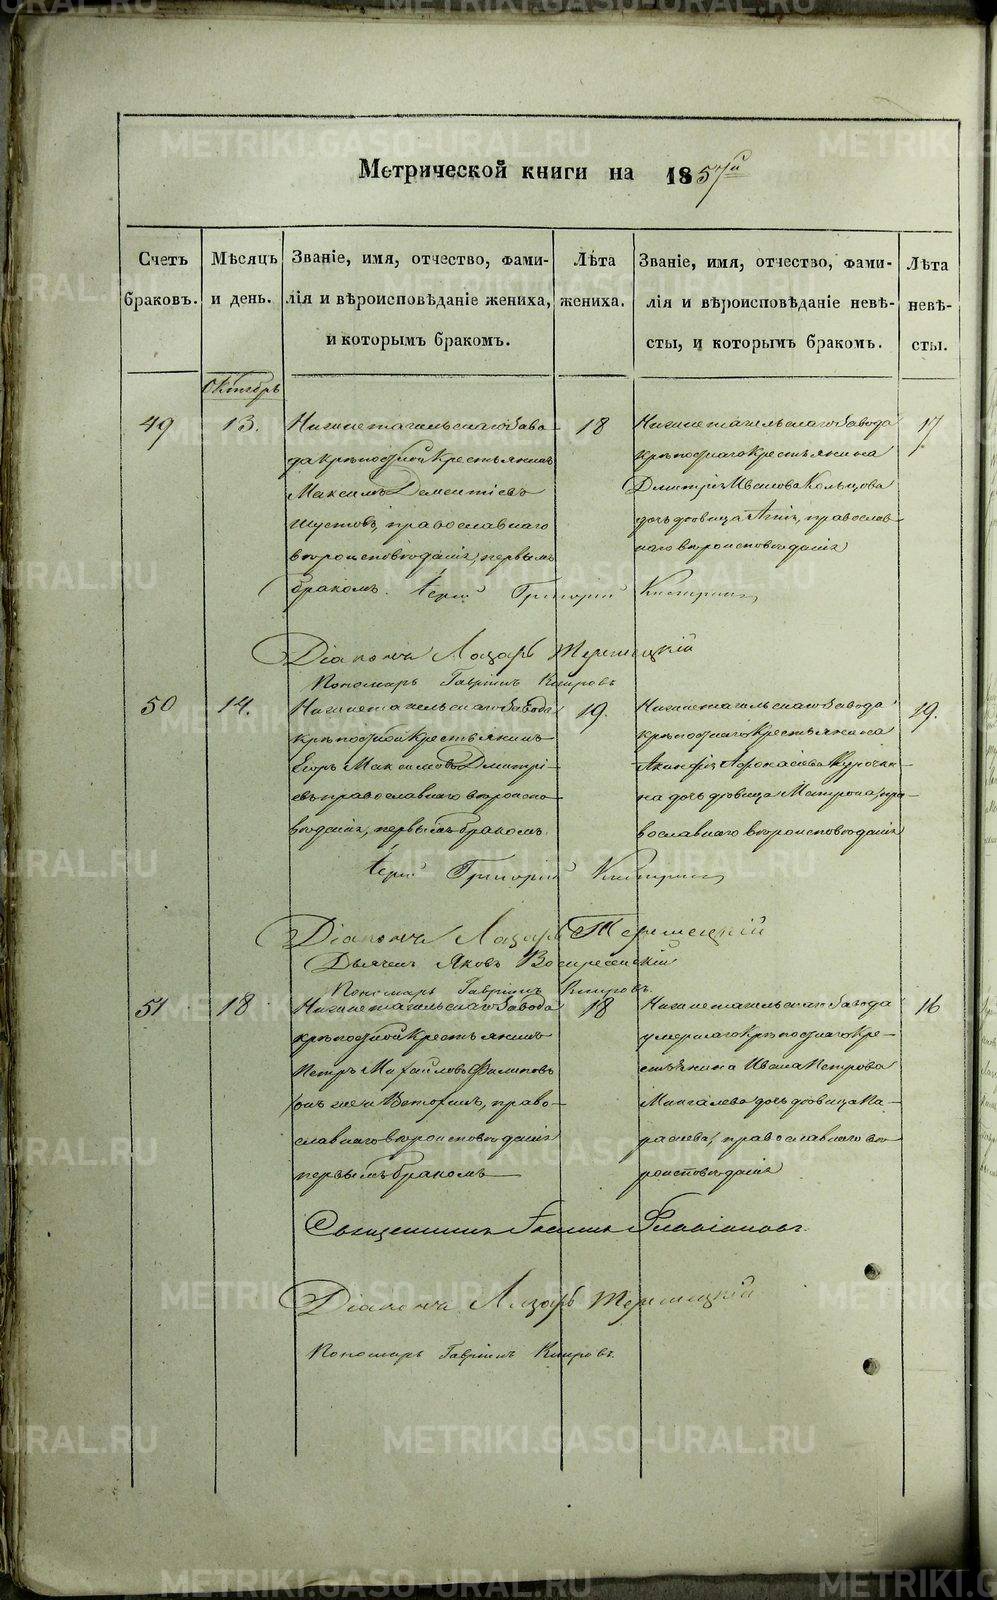 METRIKI.GASO-URAL.RU
Метрической книги на 1857й
Счетъ браковъ.
Мѣсяцъ и день.
Званіе, имя, отчество, фами-
лія и вѣроисповѣданіе жениха,
и которымъ бракомъ.
Лѣта жениха.
Званіе, имя, отчество, фами-
лія и вѣроисповѣданіе невѣ-
сты, и которымъ бракомъ.
Лѣта невѣ-
сты.
Октябрь
49
13.
Нижнетагильскаго Заво-
да крѣпостной крестьянинъ
Максимъ Дементіевъ
Шустовъ, православнаго
вѣроисповѣданія, первымъ
бракомъ.
18
Нижнетагильскаго Завода
крѣпостнаго крестьянина
Дмитрія Иванова Кольцова
дочь дѣвица, православ-
наго вѣроисповѣданія
17
Іерей Григорій
Діаконъ Лазарь
Пономарь Гавріилъ
50
14.
Нижнетагильскаго Завода
крѣпостной крестьянинъ
Егоръ Максимовъ Дмитрі-
евъ православнаго вѣроиспо-
вѣданія, первымъ бракомъ.
19.
Нижнетагильскаго Завода
крѣпостнаго крестьянина
Акинфія Афонасіева Курочки-
на дочь дѣвица Матрона, пра-
вославнаго вѣроисповѣданія
19.
Іерей Григорій
Діаконъ Лазарь
Дьячекъ Яковъ Воскресенскій
Пономарь Гавріилъ
51
18
Нижнетагильскаго Завода
крѣпостной крестьянинъ
Петръ Михайловъ Филиповъ
православнаго вѣроисповѣданія
первымъ бракомъ
18
Нижнетагильскаго Завода
умершаго крѣпостнаго кре-
стьянина Ивана Петрова
дочь дѣвица Па-
раскева, православнаго вѣ-
роисповѣданія
16
Священникъ Іоаннъ Флавіановъ.
Діаконъ Лазарь
Пономарь Гавріилъ